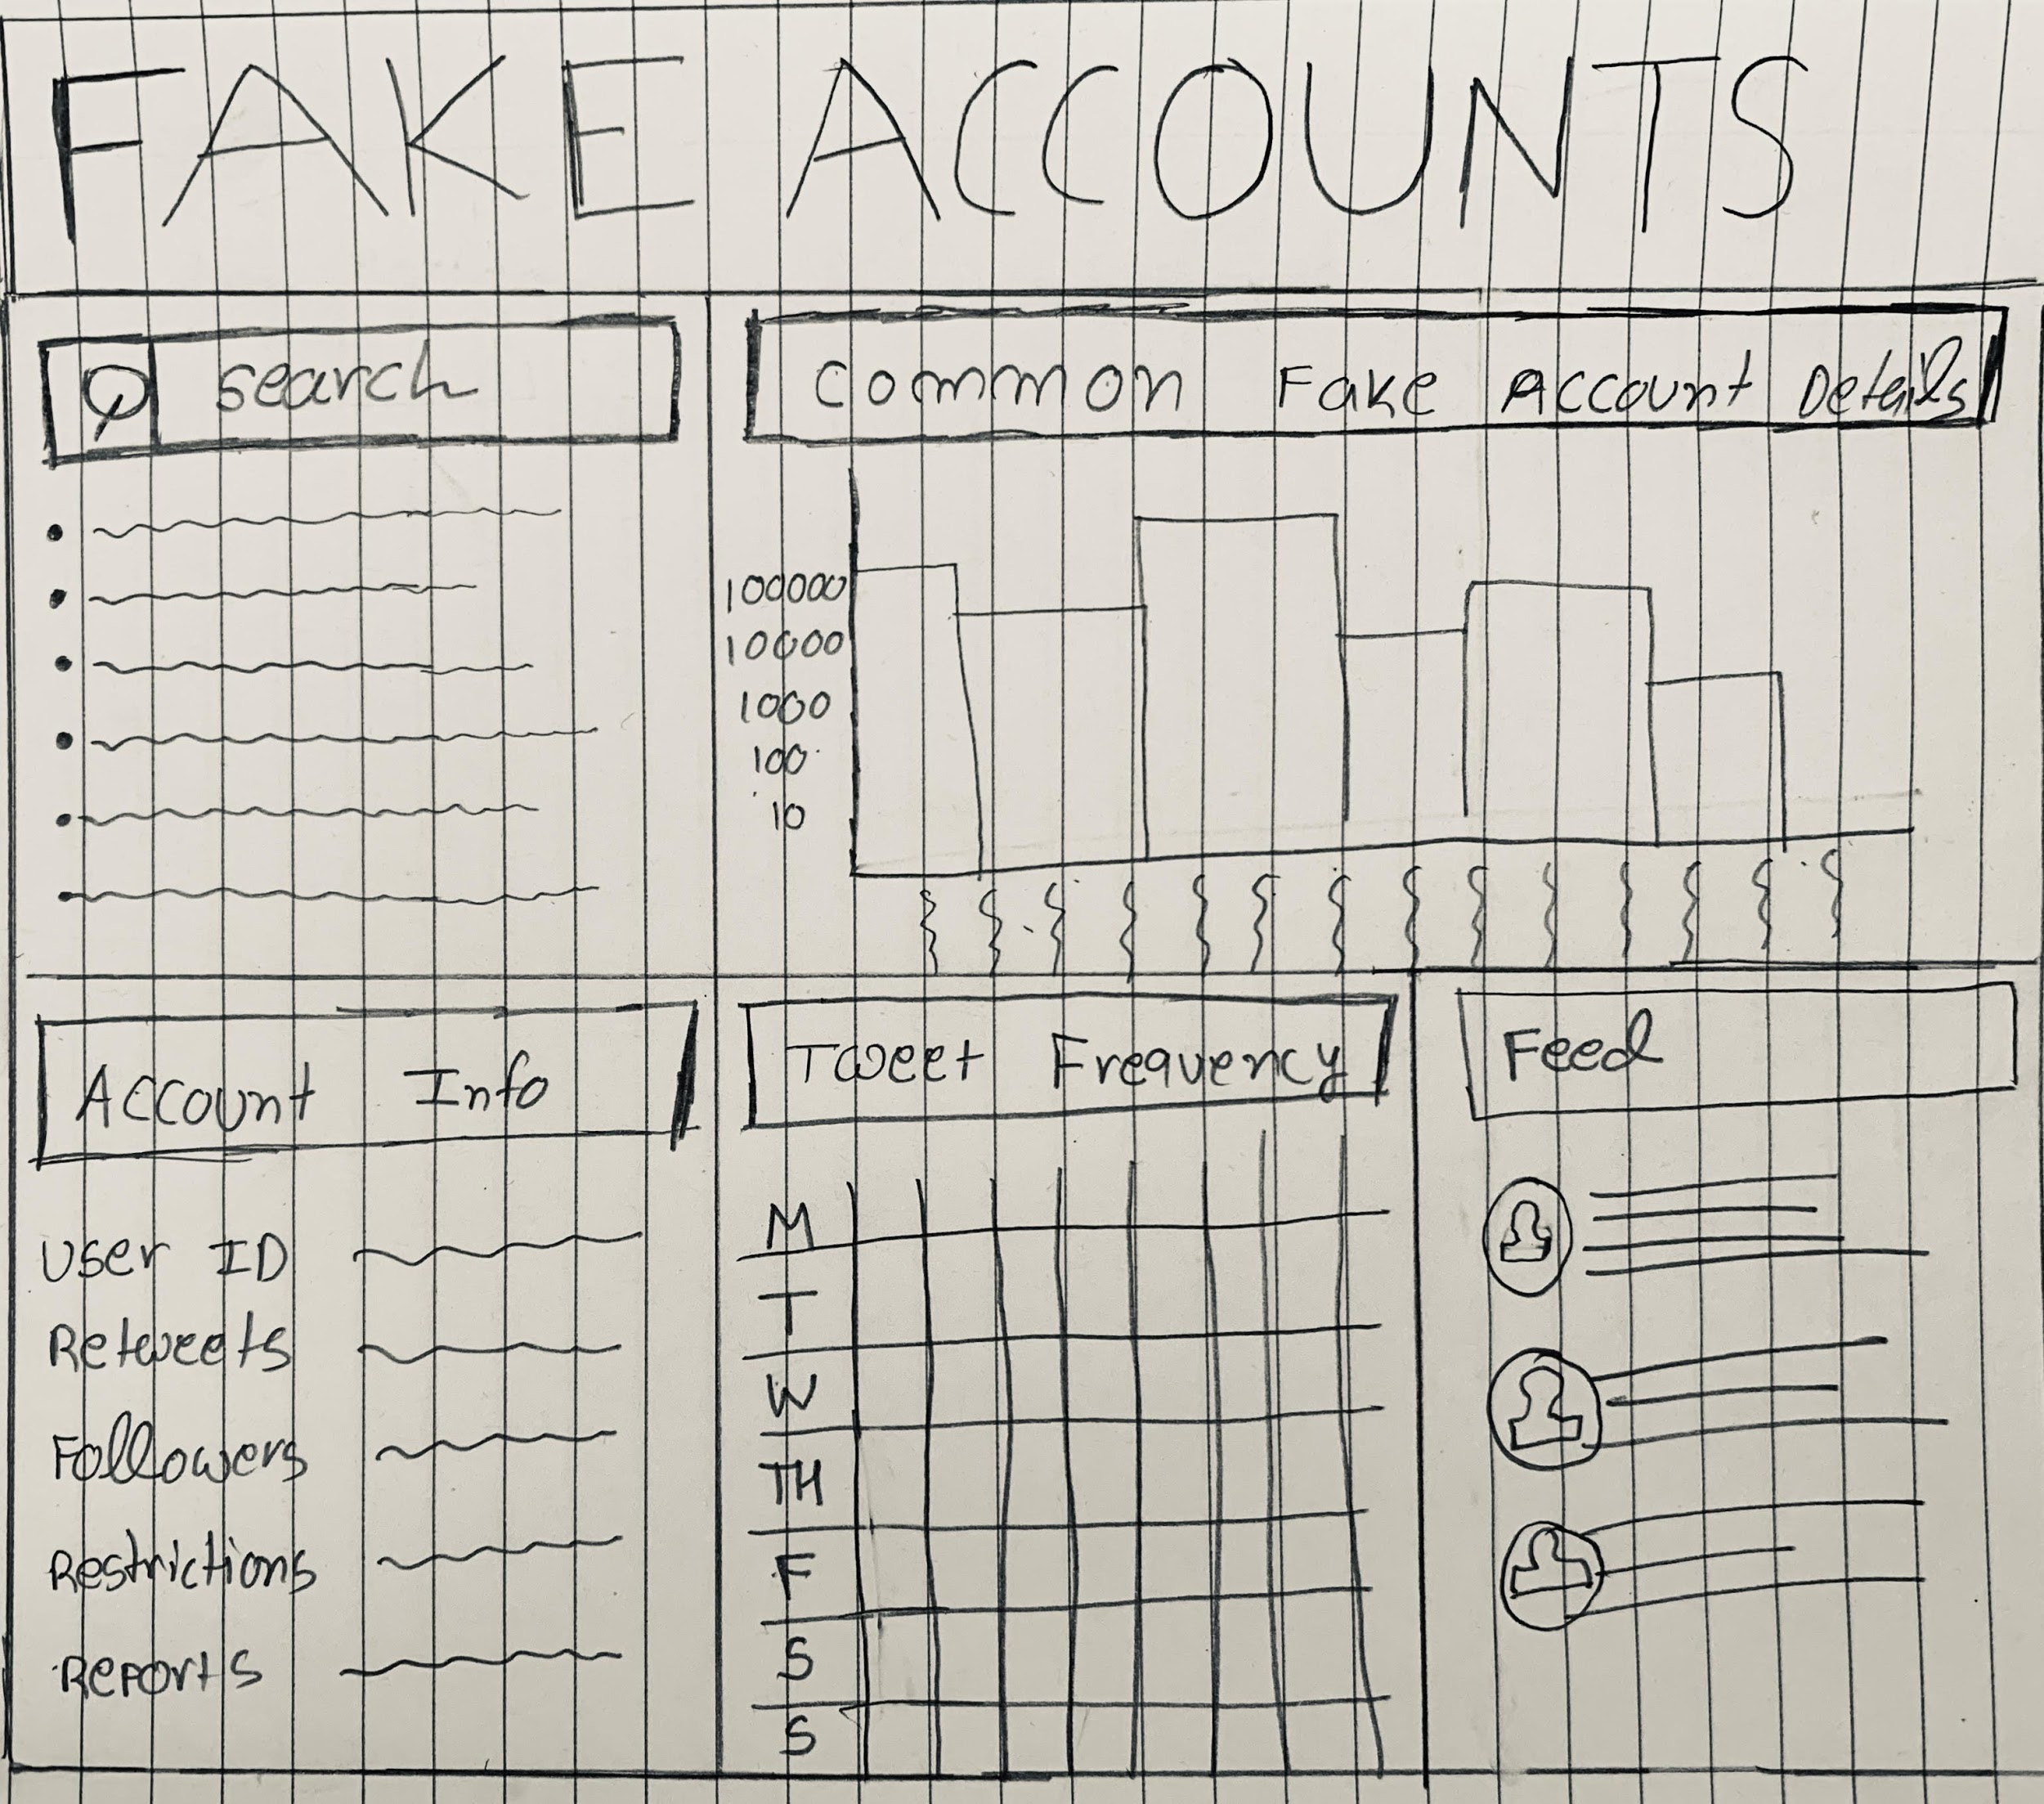 FAKE ACCOUNTS
search
Common Fake Account Details
100000
10000
1000
100
10
Account Info
User ID
Retweets
Followers
Restrictions
Reports
Tweet Frequency
M
T
W
TH
F
S
S
Feed